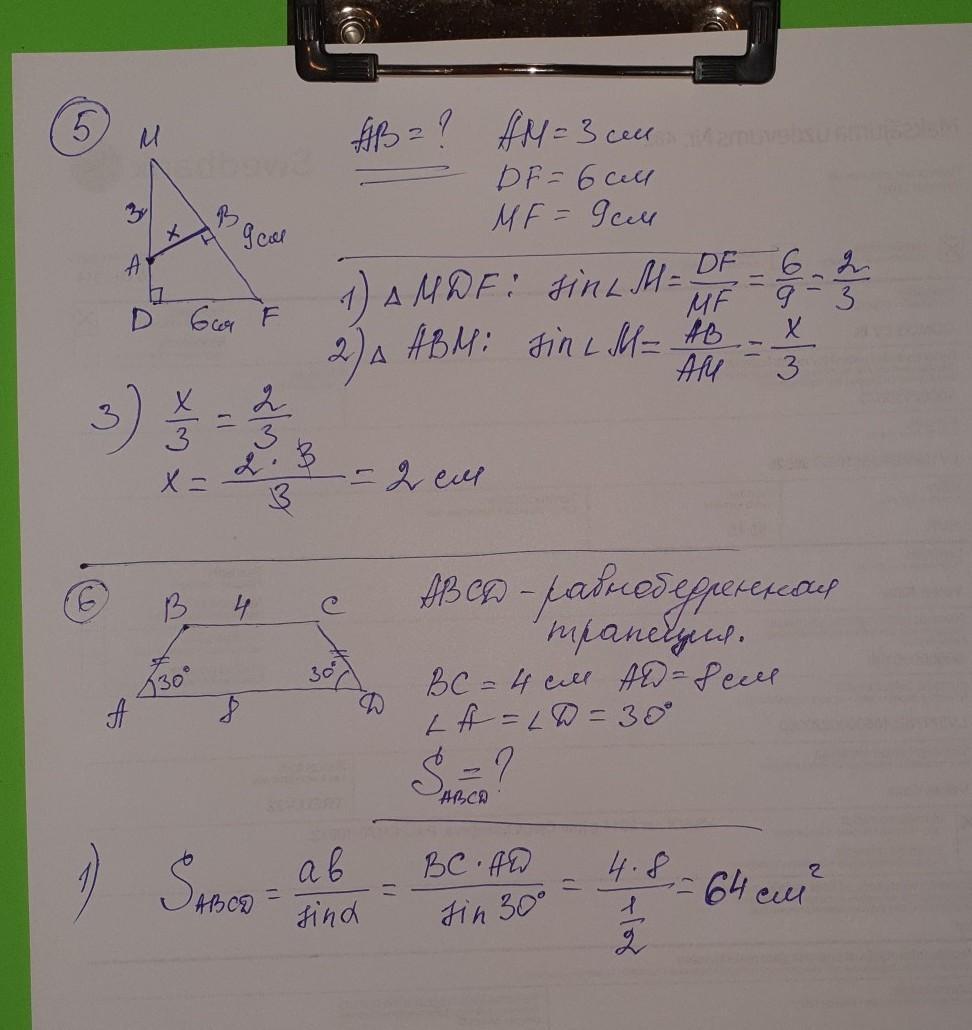 5
M
AB = ?
AM = 3 см
DF = 6 см
MF = 9 см
3
x
B
9 см
A
D
6 см
F
1) △ MDF: sin∠M = DF/MF = 6/9 = 2/3
2) △ ABM: sin∠M = AB/AM = x/3
3) x/3 = 2/3
x = 2·3/3 = 2 см
6
B 4 C
30° 30°
A 8 D
ABCD – равнобедренная
трапеция.
BC = 4 см AD = 8 см
∠A = ∠D = 30°
S ABCD = ?
1) S ABCD = ab/sinα = BC·AD/sin 30° = 4·8/(1/2) = 64 см²